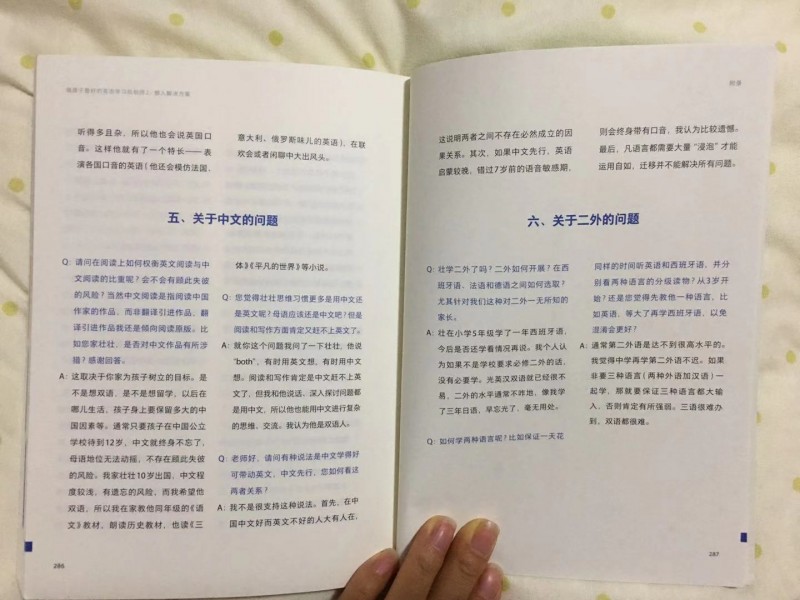 附录
听得多且杂，所以他也会说英国口
音。这样他就有了一个特长——表
演各国口音的英语（他还会模仿法国、
意大利、俄罗斯味儿的英语），在联
欢会或者闲聊中大出风头。
五、关于中文的问题
Q: 请问在阅读上如何权衡英文阅读与中
文阅读的比重呢？会不会有顾此失彼
的风险？当然中文阅读是指阅读中国
作家的作品，而非翻译引进作品，翻
译引进作品我还是倾向阅读原版。比
如您家壮壮，是否对中文作品有所涉
猎？感谢回答。
A: 这取决于你家为孩子树立的目标。是
不是想双语，是不是想留学，以后在
哪儿生活，孩子身上要保留多大的中
国因素等。通常只要孩子在中国公立
学校待到12岁，中文就终身不忘了，
母语地位无法动摇，不存在顾此失彼
的风险。我家壮壮10岁出国，中文程
度较浅，有遗忘的风险，而我希望他
双语，所以我在家教他同年级的《语
文》教材，朗读历史教材，也读《三
体》《平凡的世界》等小说。
Q: 您觉得壮壮思维习惯更多是用中文还
是英文呢？母语应该还是中文吧？但是
阅读和写作方面肯定又赶不上英文了。
A: 就你这个问题我问了一下壮壮，他说
“both”，有时用英文想，有时用中文
想。阅读和写作肯定是中文赶不上英
文了，但我和他说话、深入探讨问题都
是用中文，所以他也能用中文进行复杂
的思维、交流。我认为他是双语人。
Q: 老师好，请问有种说法是中文学得好
可带动英文，中文先行，您如何看这
两者关系？
A: 我不是很支持这种说法。首先，在中
国中文好而英文不好的人大有人在，
286
这说明两者之间不存在必然成立的因
果关系。其次，如果中文先行，英语
启蒙较晚，错过7岁前的语音敏感期，
则会终身带有口音，我认为比较遗憾。
最后，凡语言都需要大量“浸泡”才能
运用自如，迁移并不能解决所有问题。
六、关于二外的问题
Q: 壮学二外了吗？二外如何开展？在西
班牙语、法语和德语之间如何选取？
尤其针对我们这种对二外一无所知的
家长。
A: 壮在小学5年级学了一年西班牙语，
今后是否还学看情况再说。我个人认
为如果不是学校要求必修二外的话，
没有必要学。光英汉双语就已经很不
易，二外的水平通常不咋地，像我学
了三年日语，早忘光了，毫无用处。
Q: 如何学两种语言呢？比如保证一天花
同样的时间听英语和西班牙语，并分
别看两种语言的分级读物？从3岁开
始？还是您觉得先教他一种语言，比
如英语，等大了再学西班牙语，以免
混淆会更好？
A: 通常第二外语是达不到很高水平的。
我觉得中学再学第二外语不迟。如果
非要三种语言（两种外语加汉语）一
起学，那就要保证三种语言都大输
入，否则肯定有所强弱。三语很难办
到，双语都很难。
287